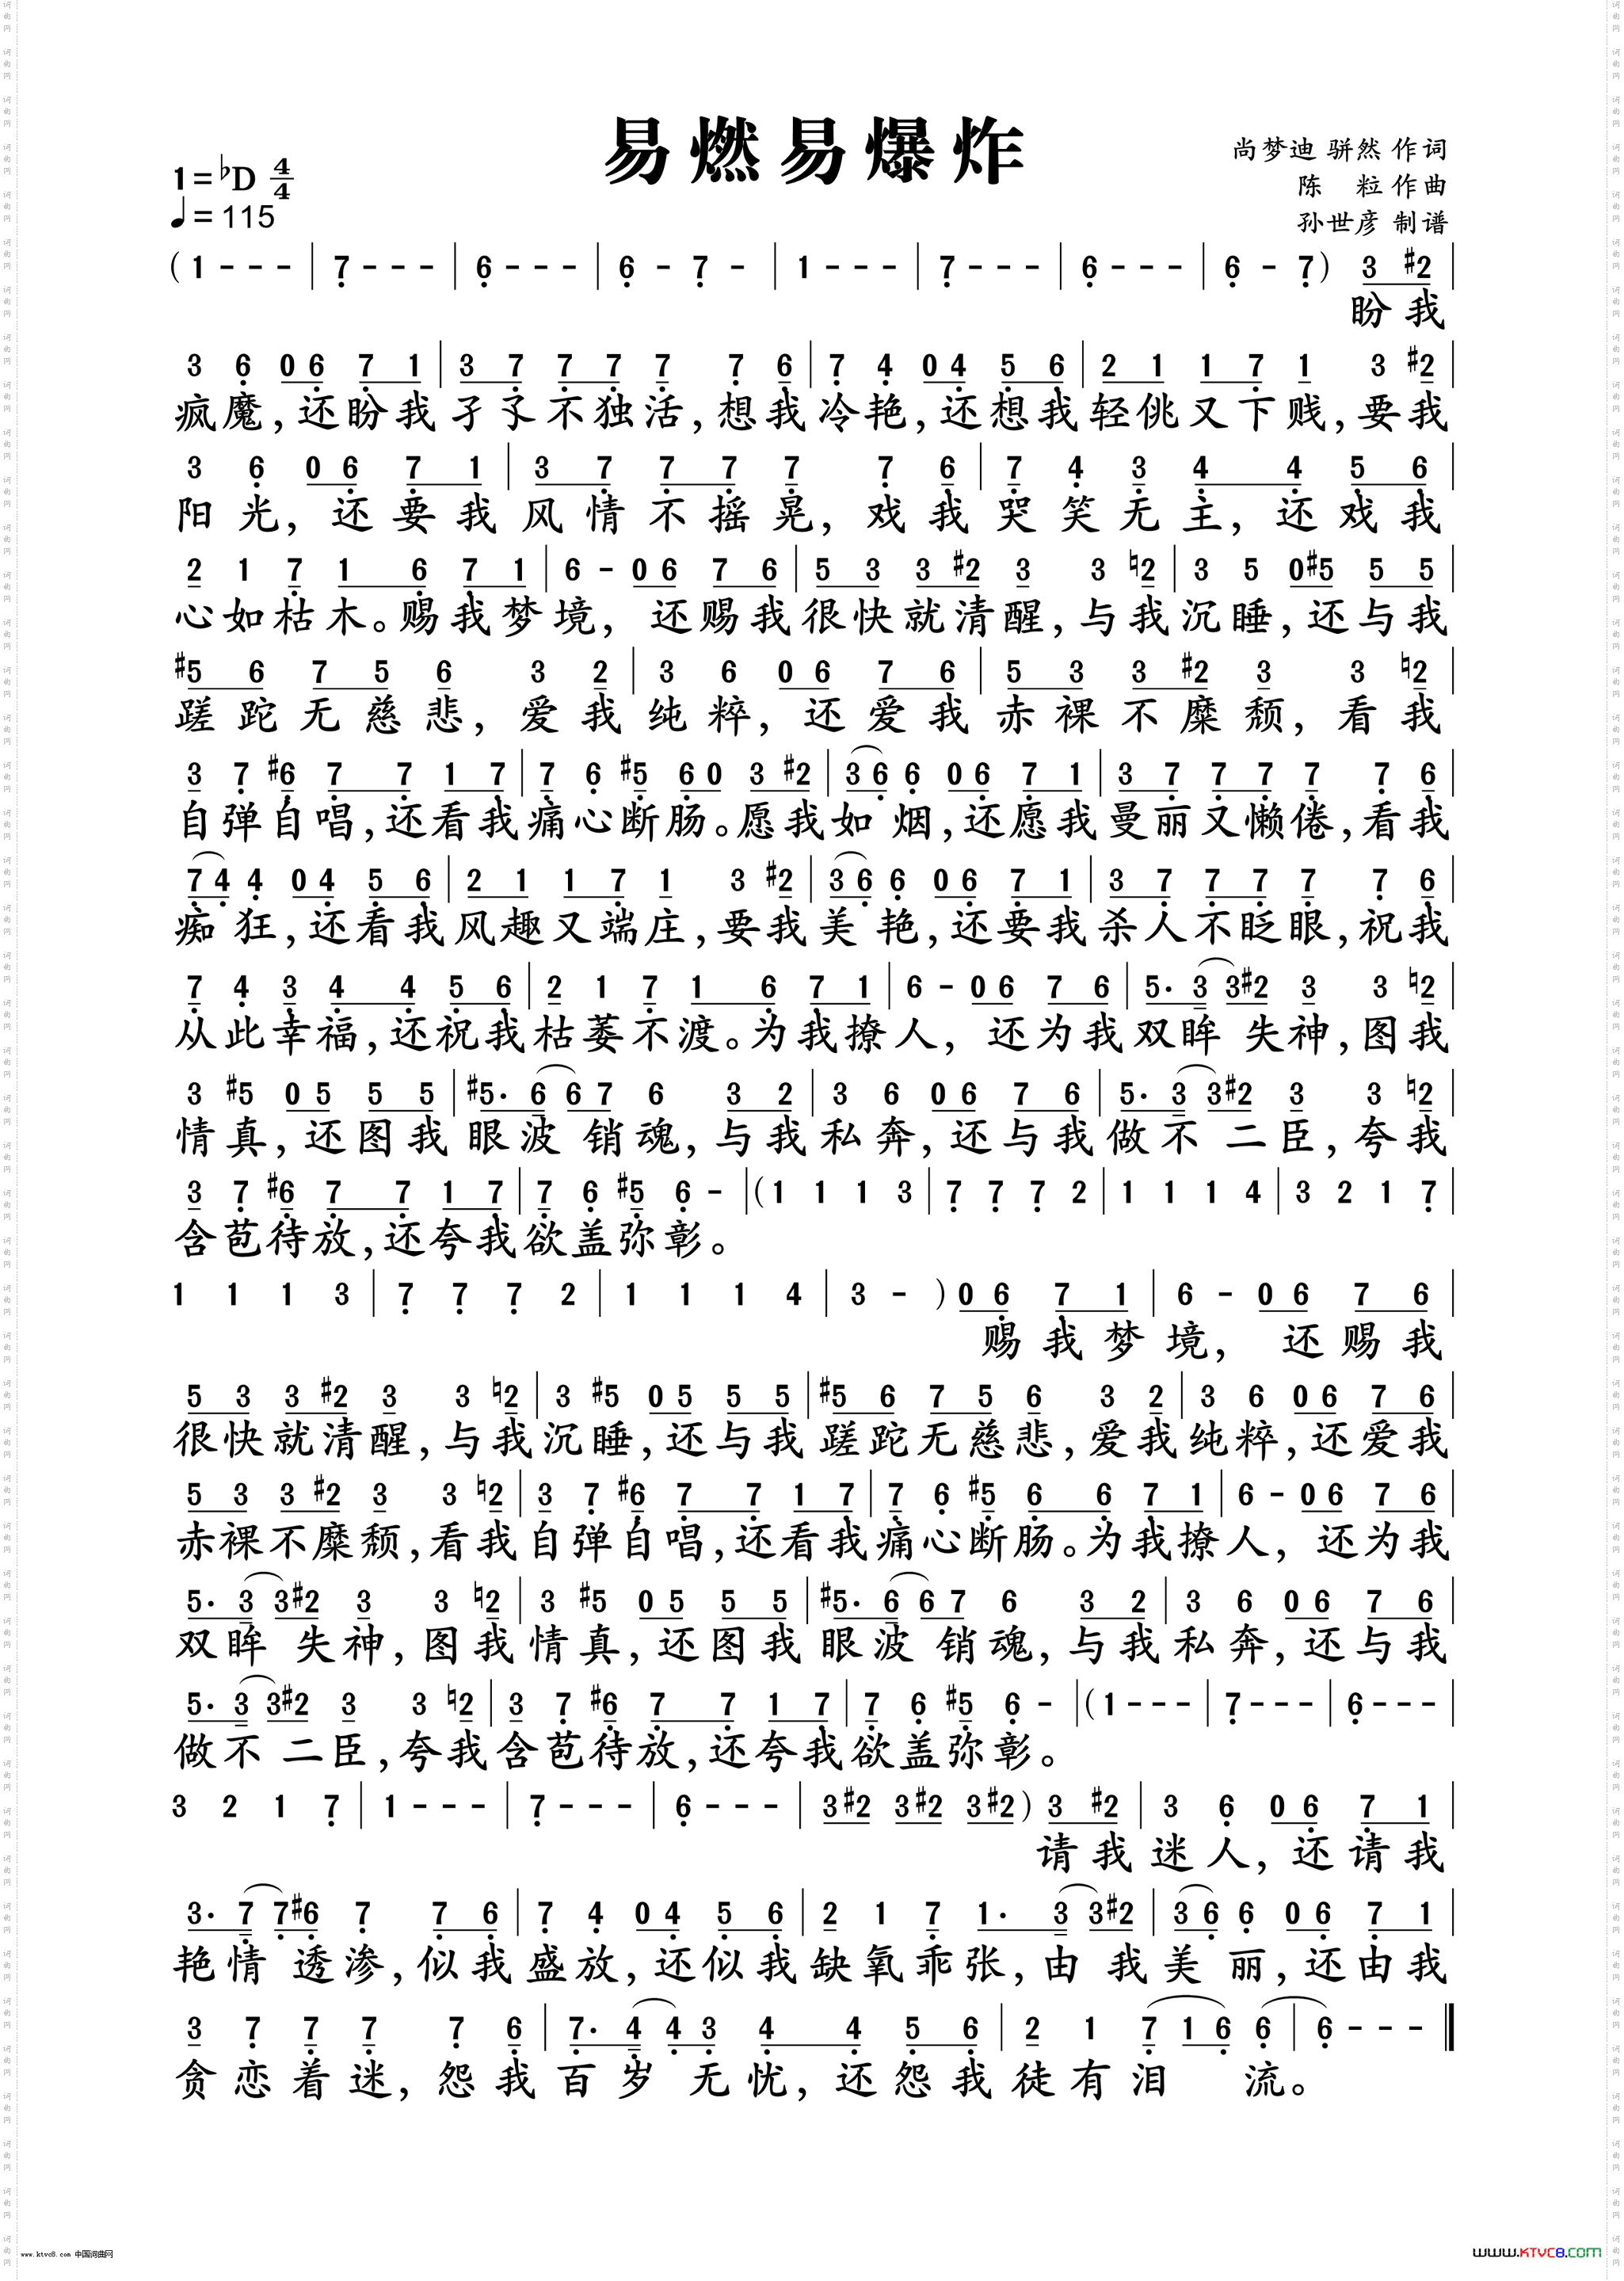 易燃易爆炸
尚梦迪 骈然 作词
陈 粒 作曲
孙世彦 制谱
1=♭D 4/4
♩=115
(1 - - - | 7 - - - | 6 - - - | 6 - 7 - | 1 - - - | 7 - - - | 6 - - - | 6 - 7) 3 #2 |
盼我
3 6 0 6 7 1 | 3 7 7 7 7 7 6 | 7 4 0 4 5 6 | 2 1 1 7 1 3 #2 |
疯魔,还盼我孑孓不独活,想我冷艳,还想我轻佻又下贱,要我
3 6 0 6 7 1 | 3 7 7 7 7 7 6 | 7 4 3 4 4 5 6 |
阳光,还要我风情不摇晃,戏我哭笑无主,还戏我
2 1 7 1 6 7 1 | 6 - 0 6 7 6 | 5 3 3 #2 3 3 ♮2 | 3 5 0 #5 5 5 |
心如枯木。赐我梦境,还赐我很快就清醒,与我沉睡,还与我
#5 6 7 5 6 3 2 | 3 6 0 6 7 6 | 5 3 3 #2 3 3 ♮2 |
蹉跎无慈悲,爱我纯粹,还爱我赤裸不糜颓,看我
3 7 #6 7 7 1 7 | 7 6 #5 6 0 3 #2 | 3 6 6 0 6 7 1 | 3 7 7 7 7 7 6 |
自弹自唱,还看我痛心断肠。愿我如烟,还愿我曼丽又懒倦,看我
7 4 4 0 4 5 6 | 2 1 1 7 1 3 #2 | 3 6 6 0 6 7 1 | 3 7 7 7 7 7 6 |
痴狂,还看我风趣又端庄,要我美艳,还要我杀人不眨眼,祝我
7 4 3 4 4 5 6 | 2 1 7 1 6 7 1 | 6 - 0 6 7 6 | 5· 3 3 #2 3 3 ♮2 |
从此幸福,还祝我枯萎不渡。为我撩人,还为我双眸失神,图我
3 #5 0 5 5 5 | #5· 6 6 7 6 3 2 | 3 6 0 6 7 6 | 5· 3 3 #2 3 3 ♮2 |
情真,还图我眼波销魂,与我私奔,还与我做不二臣,夸我
3 7 #6 7 7 1 7 | 7 6 #5 6 - | (1 1 1 3 | 7 7 7 2 | 1 1 1 4 | 3 2 1 7 |
含苞待放,还夸我欲盖弥彰。
1 1 1 3 | 7 7 7 2 | 1 1 1 4 | 3 - ) 0 6 7 1 | 6 - 0 6 7 6 |
赐我梦境,还赐我
5 3 3 #2 3 3 ♮2 | 3 #5 0 5 5 5 | #5 6 7 5 6 3 2 | 3 6 0 6 7 6 |
很快就清醒,与我沉睡,还与我蹉跎无慈悲,爱我纯粹,还爱我
5 3 3 #2 3 3 ♮2 | 3 7 #6 7 7 1 7 | 7 6 #5 6 6 7 1 | 6 - 0 6 7 6 |
赤裸不糜颓,看我自弹自唱,还看我痛心断肠。为我撩人,还为我
5· 3 3 #2 3 3 ♮2 | 3 #5 0 5 5 5 | #5· 6 6 7 6 3 2 | 3 6 0 6 7 6 |
双眸失神,图我情真,还图我眼波销魂,与我私奔,还与我
5· 3 3 #2 3 3 ♮2 | 3 7 #6 7 7 1 7 | 7 6 #5 6 - | (1 - - - | 7 - - - | 6 - - - |
做不二臣,夸我含苞待放,还夸我欲盖弥彰。
3 2 1 7 | 1 - - - | 7 - - - | 6 - - - | 3 #2 3 #2 3 #2) 3 #2 | 3 6 0 6 7 1 |
请我迷人,还请我
3· 7 7 #6 7 7 6 | 7 4 0 4 5 6 | 2 1 7 1· 3 3 #2 | 3 6 6 0 6 7 1 |
艳情透渗,似我盛放,还似我缺氧乖张,由我美丽,还由我
3 7 7 7 7 6 | 7· 4 4 3 4 4 5 6 | 2 1 7 1 6 6 | 6 - - - ‖
贪恋着迷,怨我百岁无忧,还怨我徒有泪流。
www.ktvc8.com 中国词曲网
www.KTVC8.com